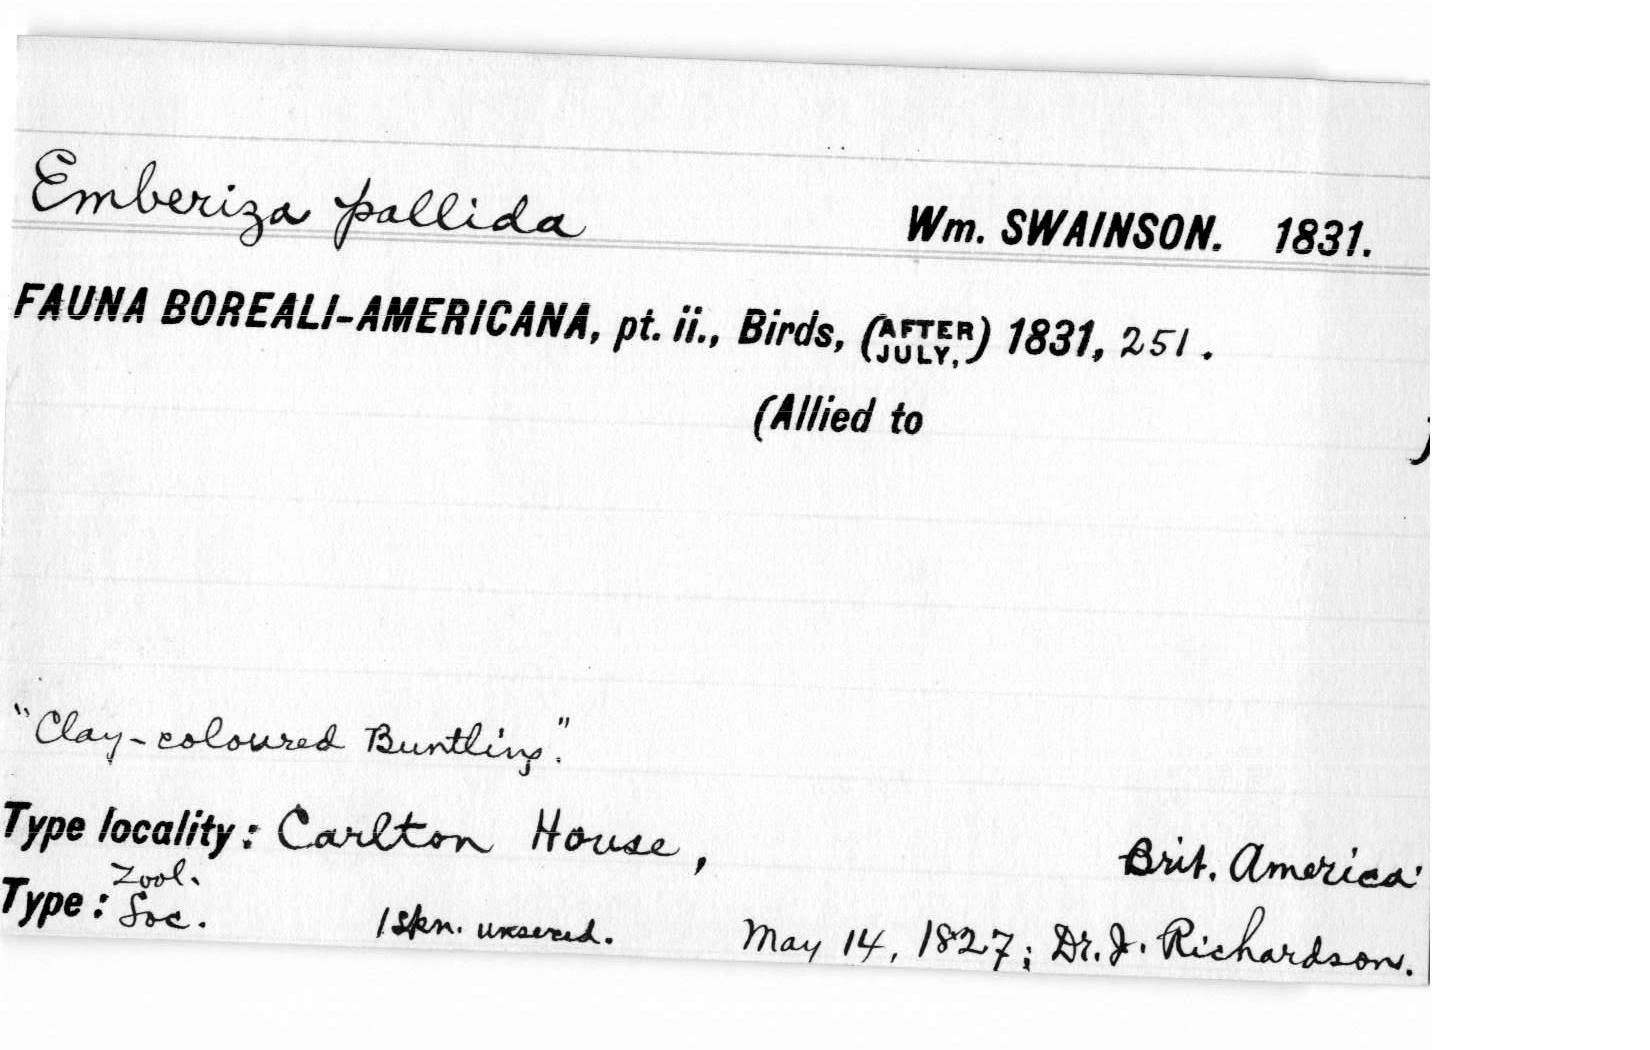 Emberiza pallida Wm. SWAINSON. 1831.
FAUNA BOREALI-AMERICANA, pt. ii., Birds, (AFTER JULY,) 1831, 251.
(Allied to )
"Clay-coloured Buntling."
Type locality: Carlton House, Brit. America.
Type: Zool. Soc. 1 skn. unsexed. May 14, 1827; Dr. J. Richardson.